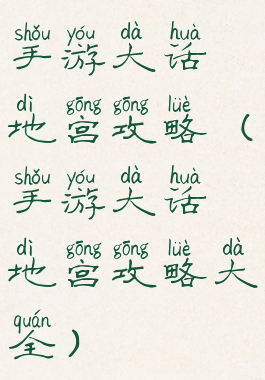 shǒu yóu dà huà
手游大话
dì gōng gōng lüè
地宫攻略（
shǒu yóu dà huà
手游大话
dì gōng gōng lüè dà
地宫攻略大
quán
全）